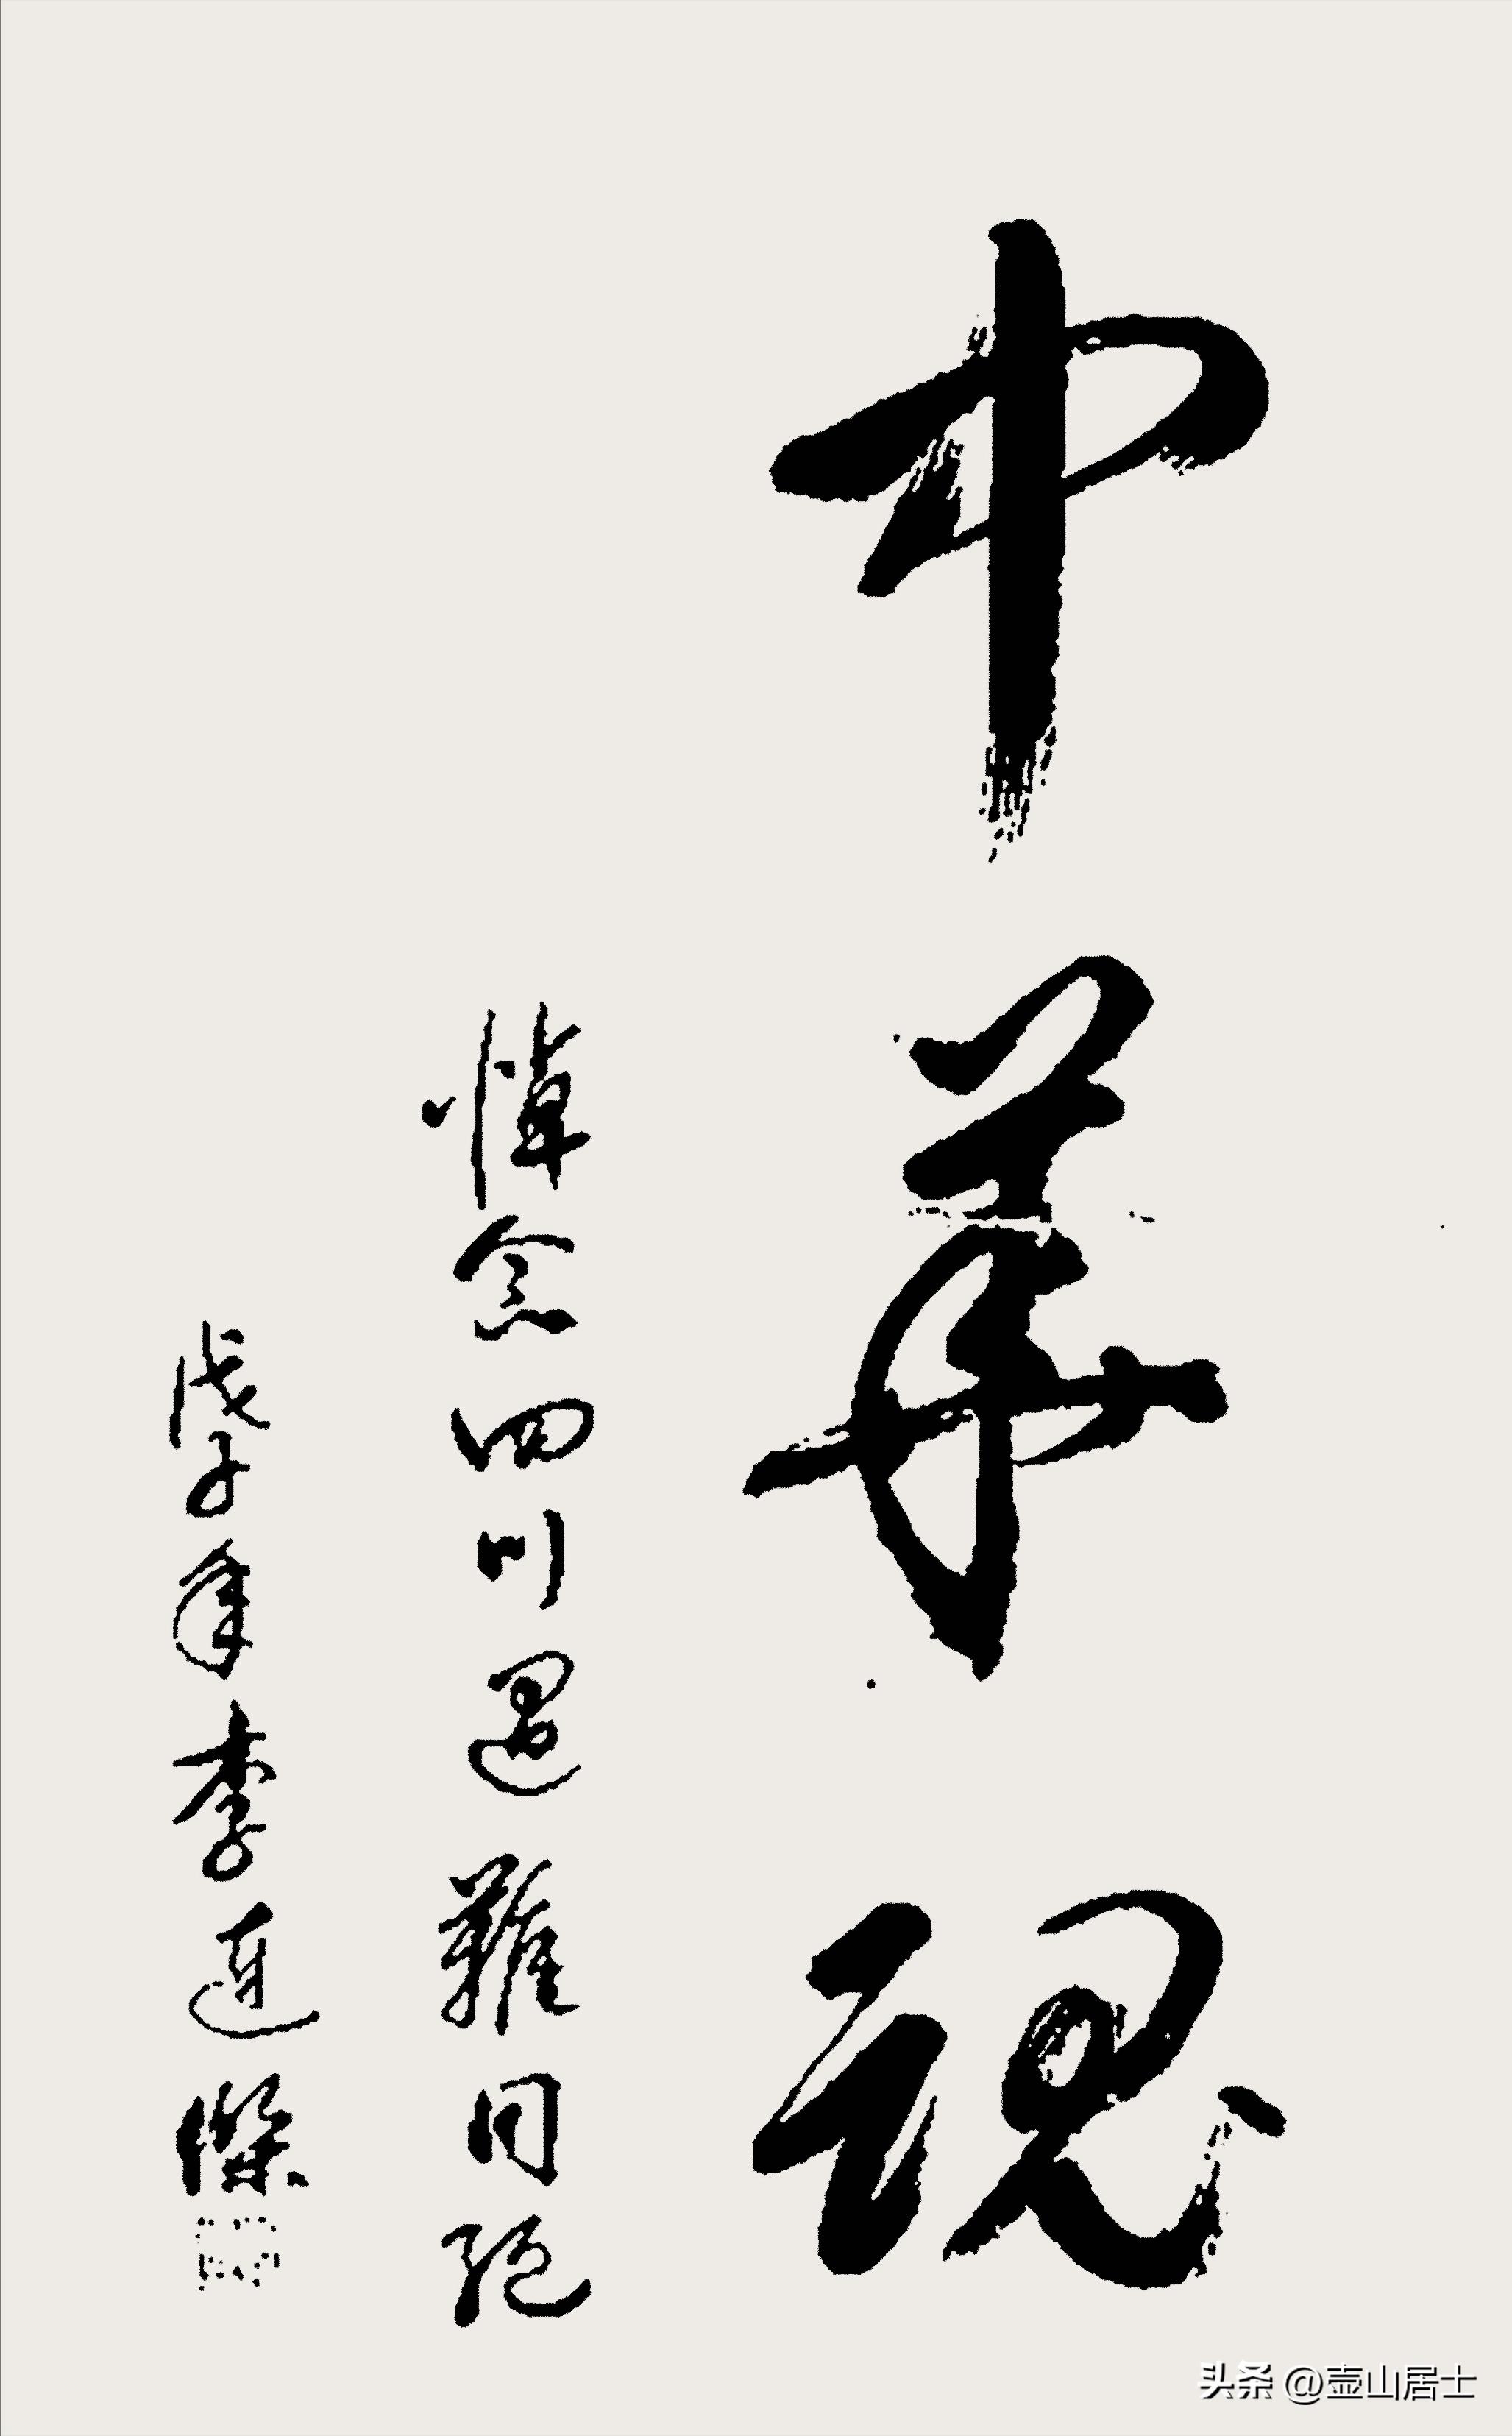 中華魂
悼念四川遇難同胞
戊子年李連傑
头条 @壶山居士